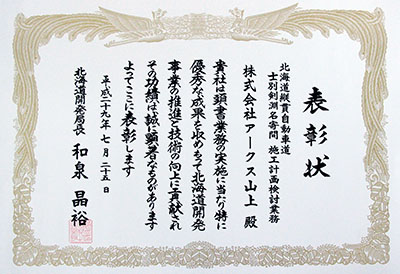 表彰状
北海道縦貫自動車道
士別剣淵名寄間 施工計画検討業務
株式会社アークス山上 殿
貴社は頭書業務の実施に当たり特に
優秀な成果を収めもって北海道開発
事業の推進と技術の向上に貢献され
その功績は誠に顕著なものがあります
よってここに表彰します
平成二十九年七月二十五日
北海道開発局長 和泉晶裕